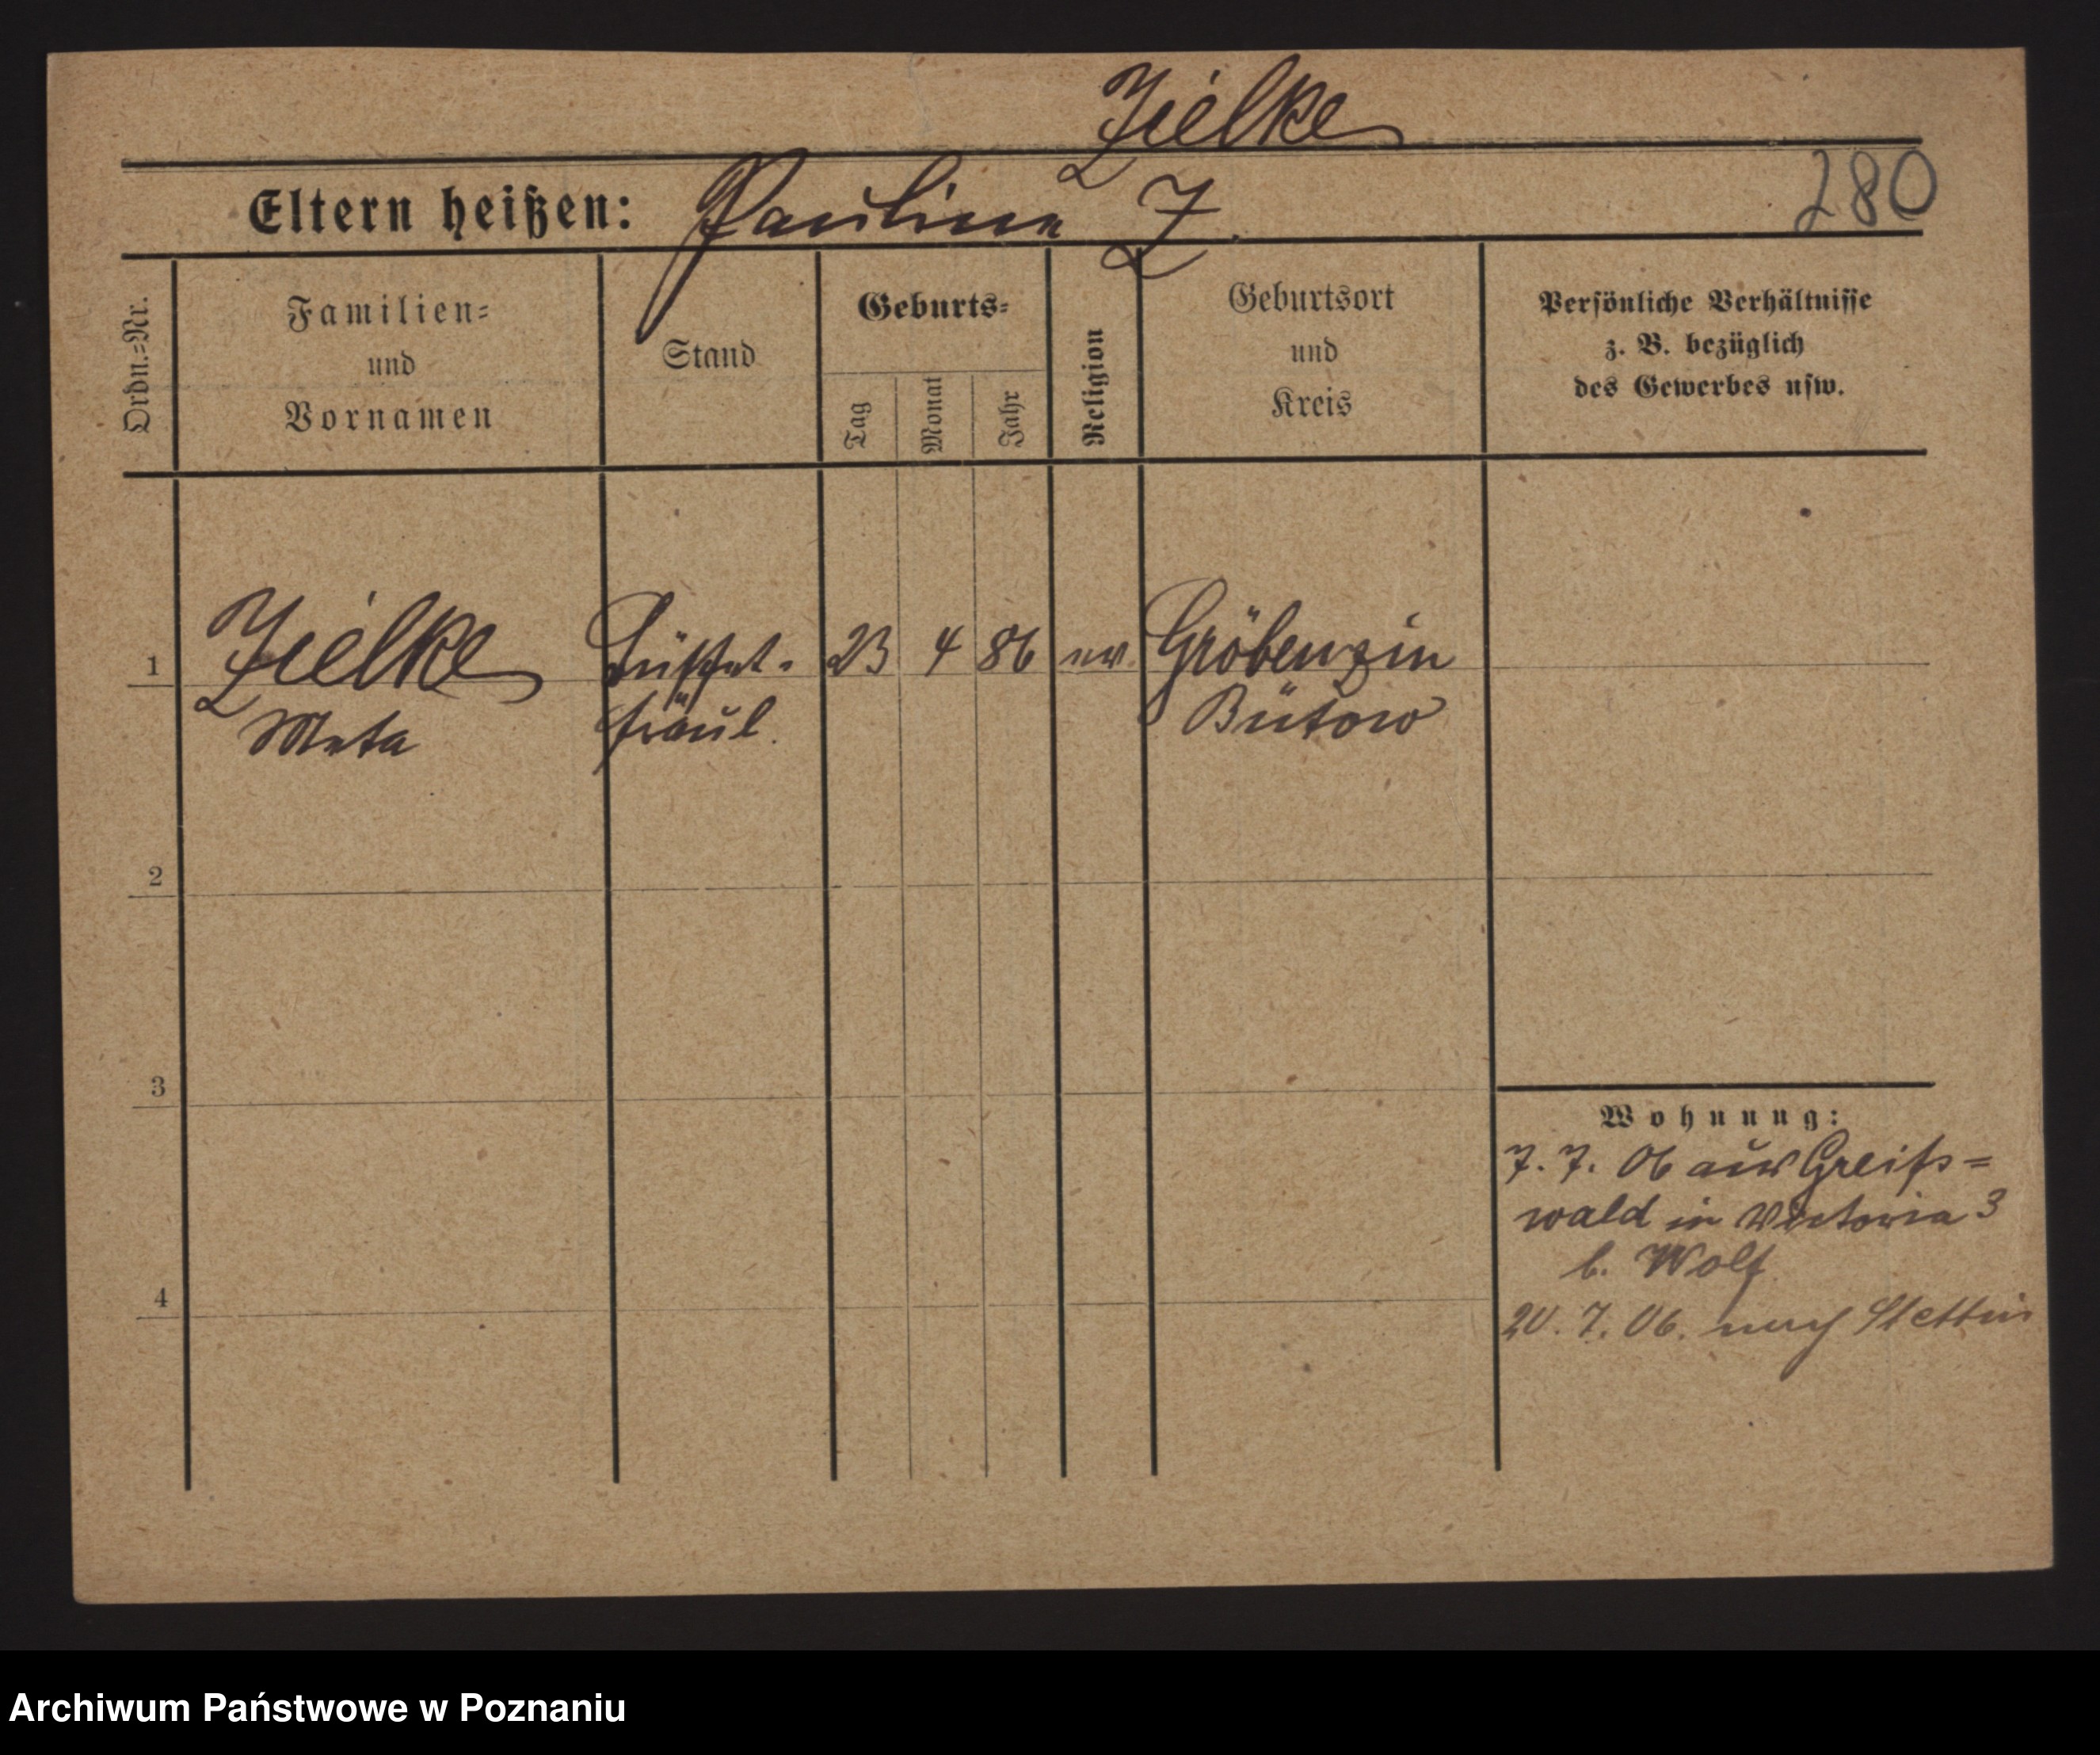 Zielke
280
Eltern heißen: Pauline Z.
Ordn.=Nr.
Familien=
und
Vornamen
Stand
Geburts=
Tag
Monat
Jahr
Religion
Geburtsort
und
Kreis
Persönliche Verhältnisse
z. B. bezüglich
des Gewerbes usw.
1
Zielke
Meta
Büffet-
fräul.
23 4 86
ev.
Gröbenzin
Bütow
2
3
4
Wohnung:
7. 7. 06 aus Greifs=
wald in Victoria 3
b. Wolf
20. 7. 06. nach Stettin
Archiwum Państwowe w Poznaniu